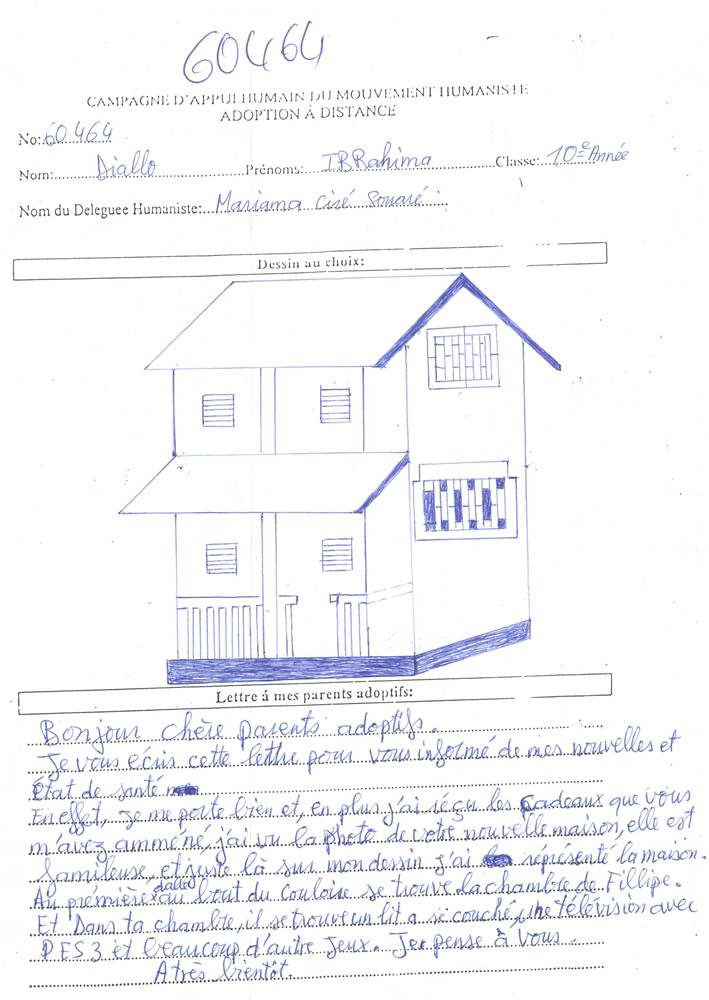 60464
CAMPAGNE D'APPUI HUMAIN DU MOUVEMENT HUMANISTE
ADOPTION À DISTANCE
No: 60464
Nom: Diallo Prénoms: IBRahima Classe: 10e Année
Nom du Deleguee Humaniste: Mariama Cisé Souaré
Dessin au choix:
Lettre á mes parents adoptifs:
Bonjour chère parents adoptifs.
Je vous écris cette lettre pour vous informé de mes nouvelles et
État de santé
En effet, je me porte bien et, en plus j'ai réçu les cadeaux que vous
m'avez amméné, j'ai vu la photo de votre nouvelle maison, elle est
famileuse, et juste là sur mon dessin j'ai réprésenté la maison.
Au prémière dalle au bout du couloire se trouve la chambre de Fillipe.
Et Dans ta chambre, il se trouve un lit a se couché, une télévision avec
PES 3 et beaucoup d'autre Jeux. Je pense à Vous.
A très bientôt.